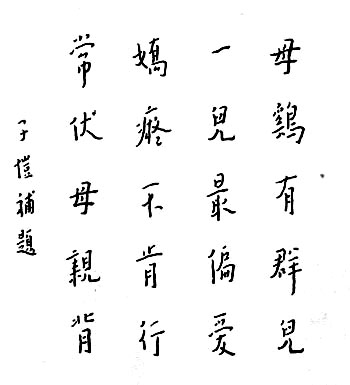 母鷄有群兒
一兒最偏爱
嬌癡不肯行
常伏母親背
子愷補題